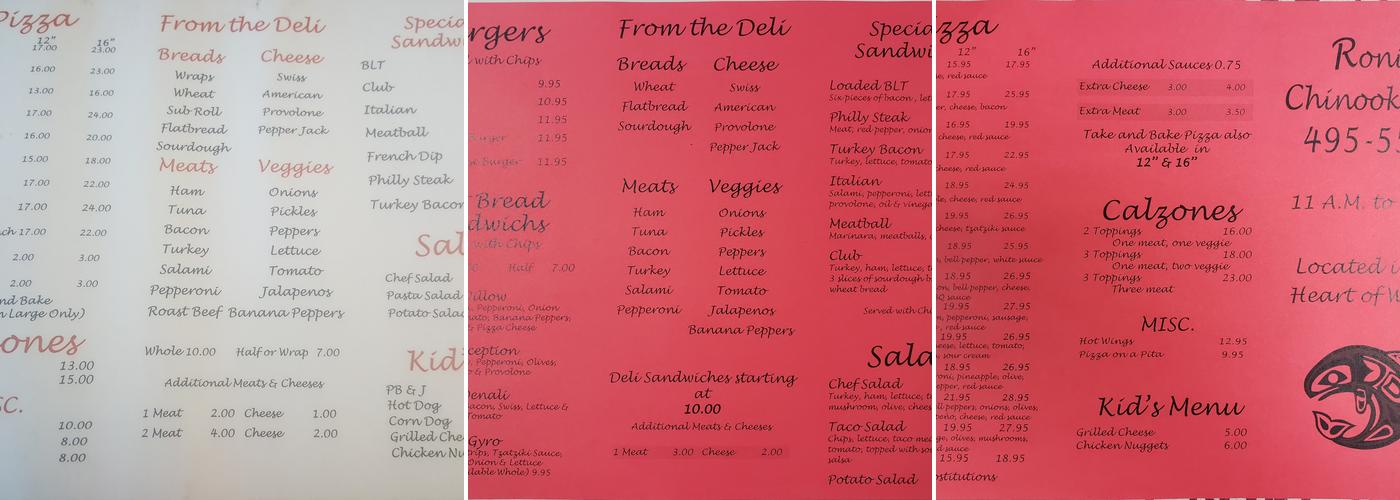 Pizza
12" 16"
17.00 23.00
16.00 23.00
13.00 16.00
17.00 24.00
16.00 20.00
15.00 18.00
17.00 22.00
17.00 24.00
17.00 22.00
2.00 3.00
2.00 3.00
nd Bake
Large Only)
ones
13.00
15.00
SC.
10.00
8.00
8.00
From the Deli
Breads Cheese
Wraps Swiss
Wheat American
Sub Roll Provolone
Flatbread Pepper Jack
Sourdough
Meats Veggies
Ham Onions
Tuna Pickles
Bacon Peppers
Turkey Lettuce
Salami Tomato
Pepperoni Jalapenos
Roast Beef Banana Peppers
Whole 10.00 Half or Wrap 7.00
Additional Meats & Cheeses
1 Meat 2.00 Cheese 1.00
2 Meat 4.00 Cheese 2.00
Specia
Sandw
BLT
Club
Italian
Meatball
French Dip
Philly Steak
Turkey Bacon
Sal
Chef Salad
Pasta Salad
Potato Salad
Kid
PB & J
Hot Dog
Corn Dog
Grilled Che
Chicken Nu
rgers
with Chips
9.95
10.95
11.95
Burger 11.95
Burger 11.95
Bread
dwichs
with Chips
Half 7.00
Pillow
, Pepperoni, Onion
ato, Banana Peppers,
& Pizza Cheese
ception
, Pepperoni, Olives,
& Provolone
Denali
Bacon, Swiss, Lettuce &
Tomato
Gyro
trips, Tzatziki Sauce,
Onion & Lettuce
ilable Whole) 9.95
From the Deli
Breads Cheese
Wheat Swiss
Flatbread American
Sourdough Provolone
Pepper Jack
Meats Veggies
Ham Onions
Tuna Pickles
Bacon Peppers
Turkey Lettuce
Salami Tomato
Pepperoni Jalapenos
Banana Peppers
Deli Sandwiches starting
at
10.00
Additional Meats & Cheeses
1 Meat 3.00 Cheese 2.00
Specia
Sandwi
Loaded BLT
Six pieces of bacon, lett
Philly Steak
Meat, red pepper, onion
Turkey Bacon
Turkey, lettuce, tomato
Italian
Salami, pepperoni, lett
provolone, oil & vinega
Meatball
Marinara, meatballs, c
Club
Turkey, ham, lettuce, t
3 slices of sourdough b
wheat bread
Served with Ch
Sala
Chef Salad
Turkey, ham, lettuce, t
mushroom, olive, chees
Taco Salad
Chips, lettuce, taco mea
tomato, topped with so
salsa
Potato Salad
zza
12" 16"
15.95 17.95
se, red sauce
17.95 25.95
er, cheese, bacon
16.95 19.95
cheese, red sauce
17.95 22.95
heese, red sauce
18.95 24.95
te, cheese, red sauce
19.95 26.95
cheese, tzatziki sauce
18.95 25.95
, bell pepper, white sauce
18.95 26.95
on, bell pepper, cheese,
Q sauce
19.95 27.95
n, pepperoni, sausage,
, red sauce
19.95 26.95
eese, lettuce, tomato,
, sour cream
18.95 26.95
oni, pineapple, olive,
epper, red sauce
21.95 28.95
ll peppers, onions, olives,
peno, cheese, red sauce
19.95 27.95
ge, olives, mushrooms,
d sauce
15.95 18.95
ostitutions
Additional Sauces 0.75
Extra Cheese 3.00 4.00
Extra Meat 3.00 3.50
Take and Bake Pizza also
Available in
12" & 16"
Calzones
2 Toppings 16.00
One meat, one veggie
3 Toppings 18.00
One meat, two veggie
3 Toppings 23.00
Three meat
MISC.
Hot Wings 12.95
Pizza on a Pita 9.95
Kid's Menu
Grilled Cheese 5.00
Chicken Nuggets 6.00
Roni
Chinook
495-55
11 A.M. to
Located i
Heart of W